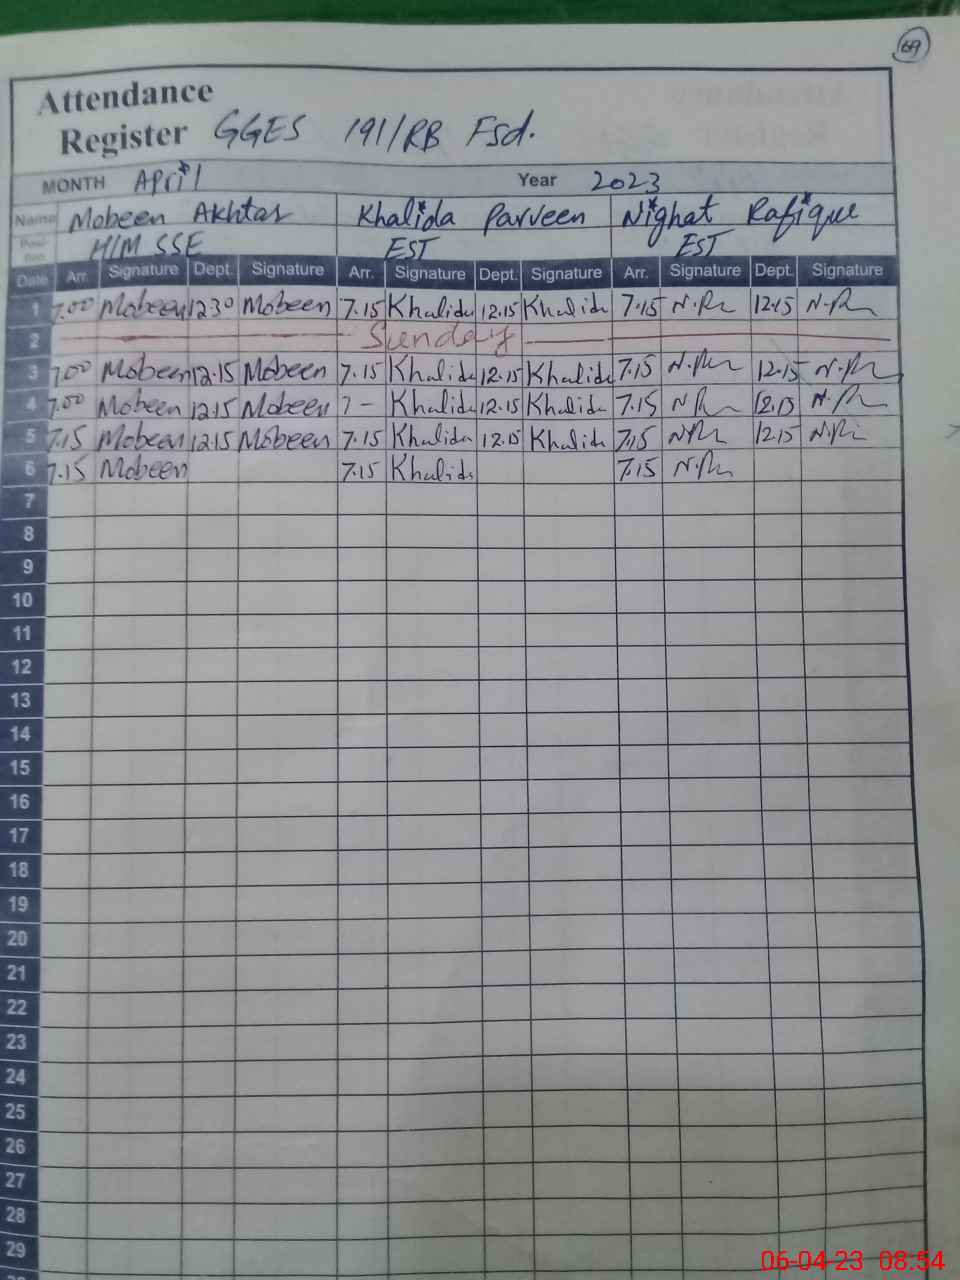 69
Attendance
Register GGES 191/RB Fsd.
MONTH April Year 2023
Name Mobeen Akhtar Khalida Parveen Nighat Rafique
H/M SSE EST EST
Date Arr. Signature Dept. Signature Arr. Signature Dept. Signature Arr. Signature Dept. Signature
1 7.00 Mobeen 12.30 Mobeen 7.15 Khalida 12.15 Khalida 7.15 12.15
2 Sunday
3 7.00 Mobeen 12.15 Mobeen 7.15 Khalida 12.15 Khalida 7.15 12.15
4 7.00 Mobeen 12.15 Mobeen 7 - Khalida 12.15 Khalida 7.15 12.15
5 7.15 Mobeen 12.15 Mobeen 7.15 Khalida 12.15 Khalida 7.15 12.15
6 7.15 Mobeen 7.15 Khalida 7.15
7
8
9
10
11
12
13
14
15
16
17
18
19
20
21
22
23
24
25
26
27
28
29
06-04-23 08:54